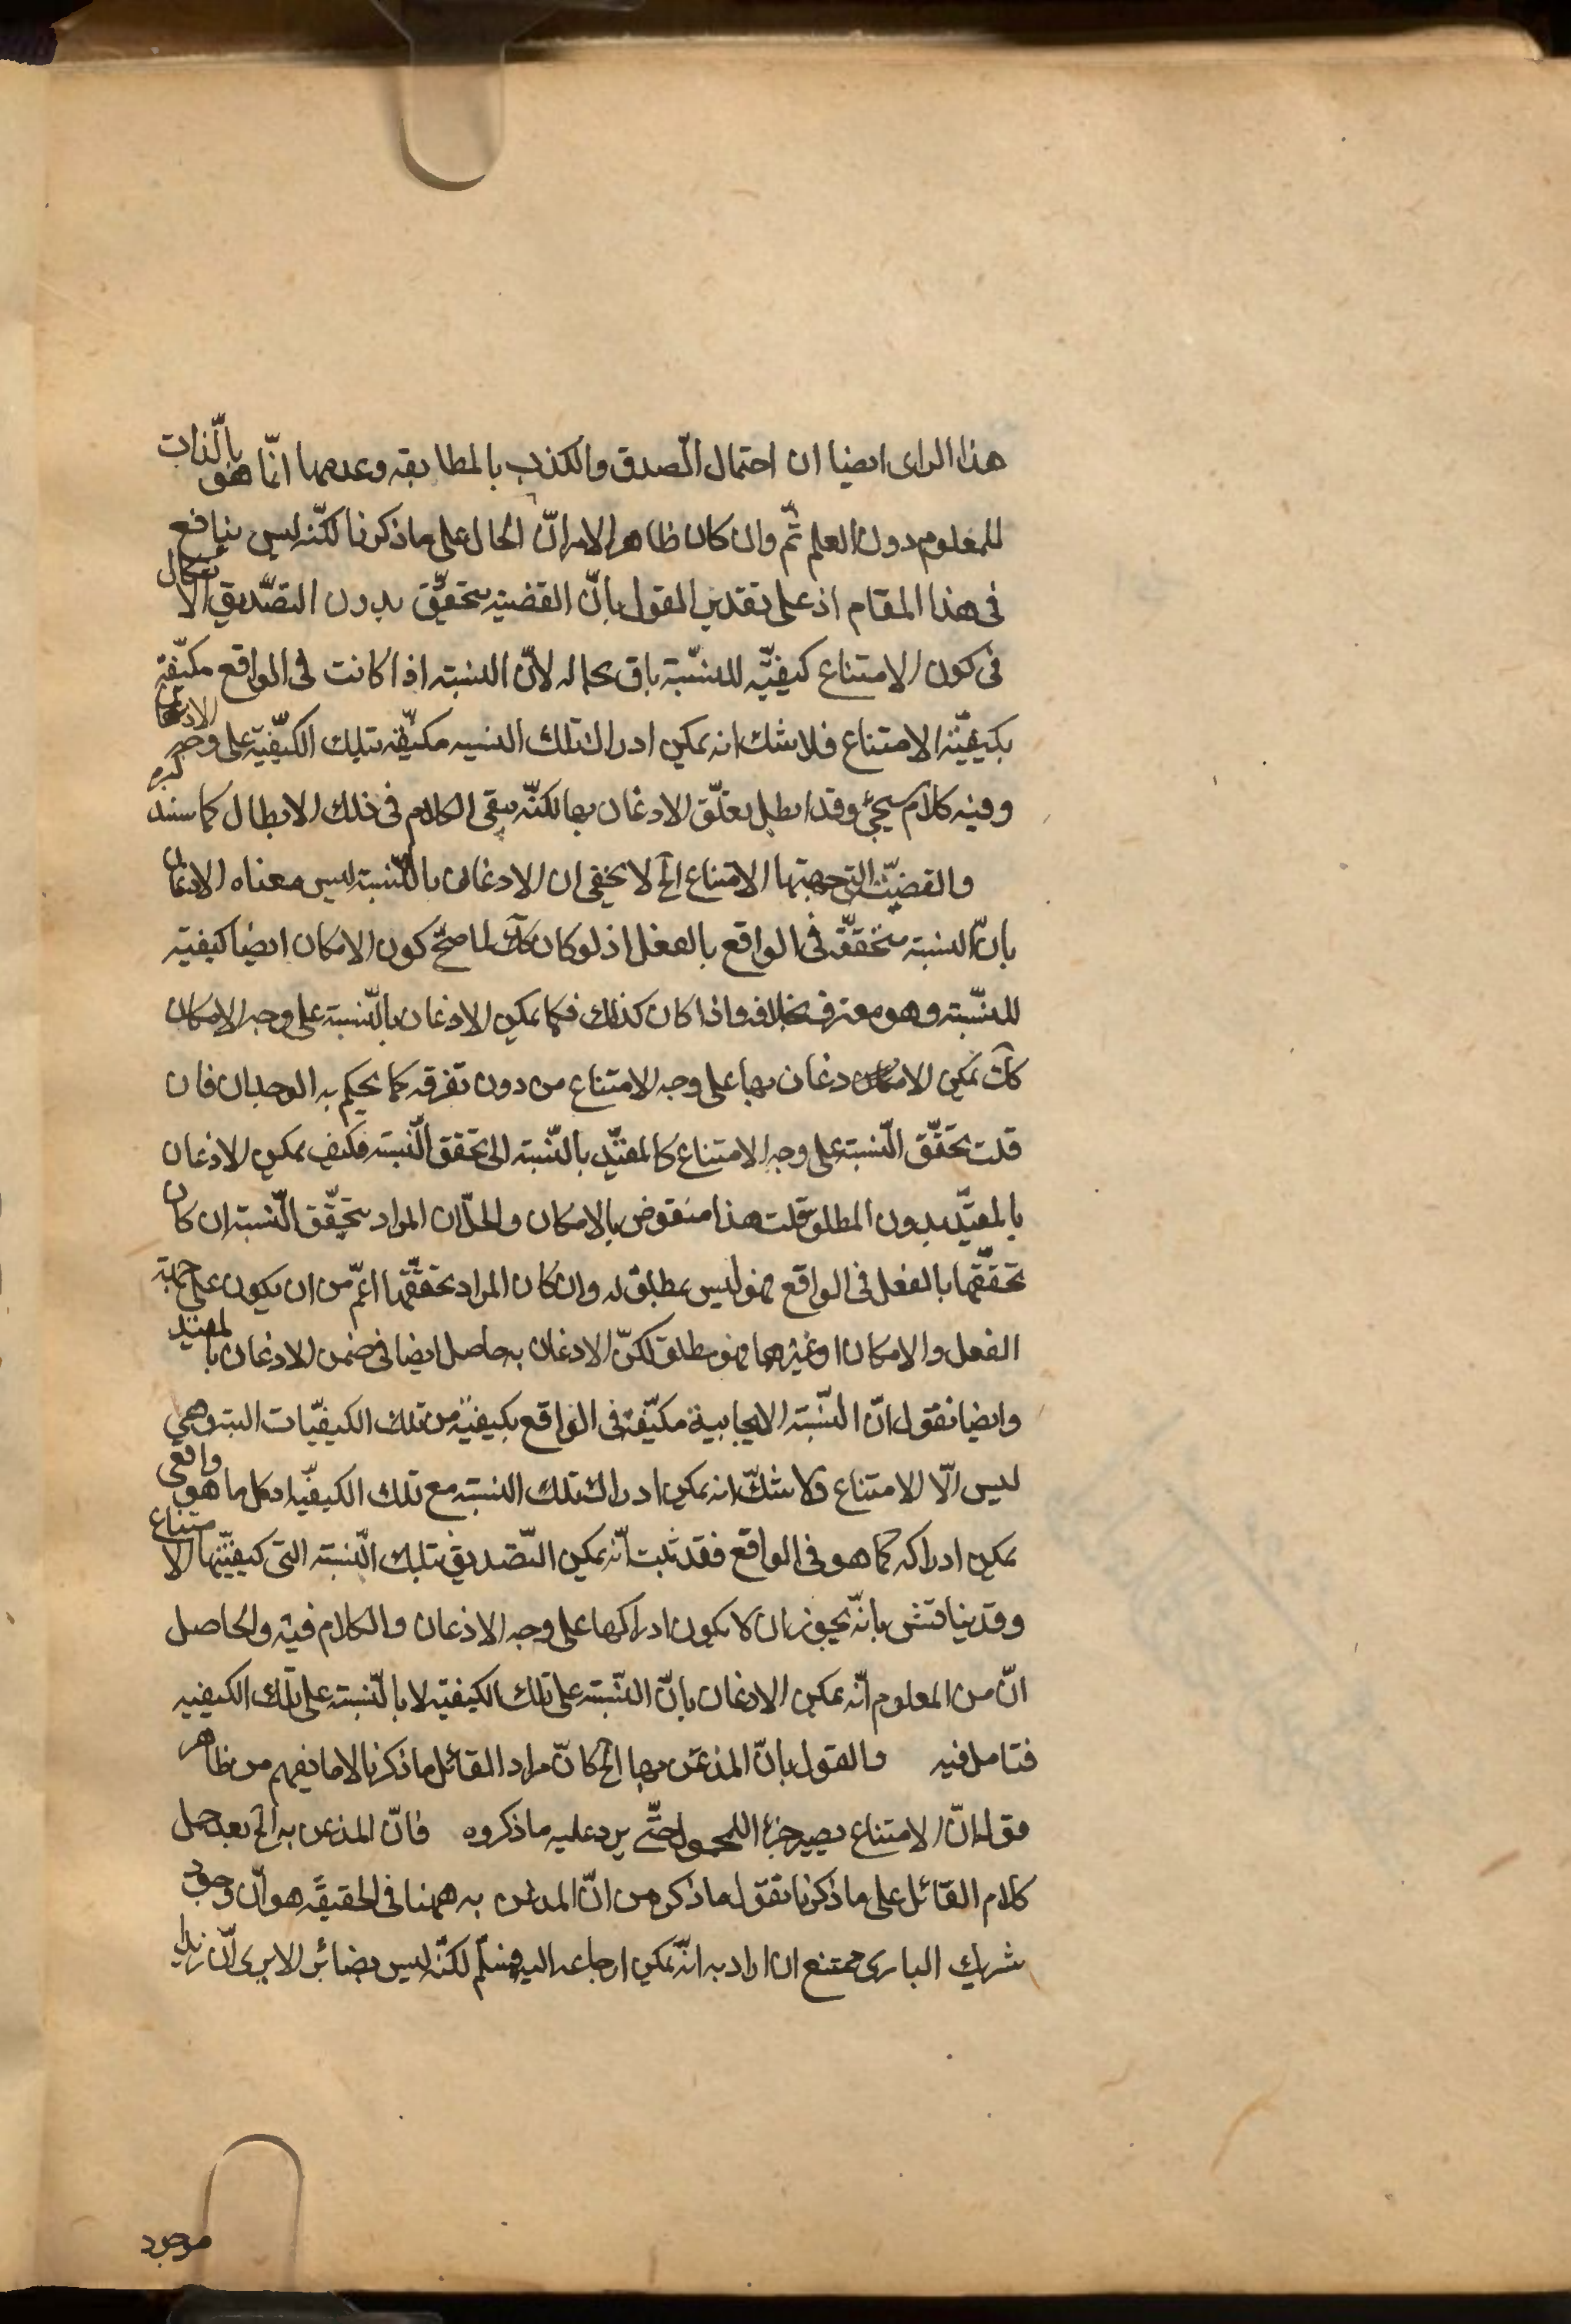 هذا الرای ایضا ان احتمال الصدق والکذب بالمطابقه وعدمها انّما هو بالّذات
للمعلوم دون العلم ثمّ وان کان ظاهر الامر انّ الحال علی ماذکرنا لکنّه لیس بنافع
فی هذا المقام اذ علی تقدیر القول بانّ القضیته یتحقّق بدون التصّدیق الاشکال
فی کون الامتناع کیفیّه للنسّبة باق بحاله لانّ النسبته اذا کانت فی الواقع مکیّفة
بکیفیّته الامتناع فلا شک انه یمکن ادراک تلک النسبه مکیّفه بتلک الکیّفیّة علی وجه الاذعان
وفیه کلام سیجیٔ وقد ابطل تعلّق الاذعان بها لکنّه یبقی الکلام فی ذلک الابطال کما سنذکره
والقضیّة التی جهتها الامتناع الخ لا یخفی ان الاذعان بالنّسبته لیس معناه الاذعان
بانّ النسبته متحققّة فی الواقع بالفعل اذ لو کان کک لما صحّ کون الامکان ایضا کیفیته
للنسّبته وهو معترف بخلافه واذا کان کذلک فکما یمکن الاذعان بالنّسبته علی وجه الامکان
کک یمکن الا دغان بها علی وجه الامتناع من دون تفرقه کما یحکم به الوجدان فان
قلت تحقّق النّسبته علی وجه الامتناع کالمقیّد بالنّسبته الی تحقق النّسبته فکیف یمکن الاذعان
بالمقیّد بدون المطلق قلت هذا منقوض بالامکان والحلّ ان المراد بتحقّق النّسبته ان کان
تحقّقها بالفعل فی الواقع فهو لیس بمطلق له وان کان المراد تحققّها اعمّ من ان یکون علی جهته
الفعل والامکان او غیرهما فهو مطلق لکنّ الاذعان به حاصل ایضا فی ضمن الاذعان بالمقید
وایضا نقول انّ النسّبته الایجابیة مکیّفة فی الواقع بکیفیّة من تلک الکیفیّات البته وهی
لیس الّا الامتناع ولا شکّ انه یمکن ادراک تلک النسبته مع تلک الکیفیّة اذ کل ما هو واقعی
یمکن ادراکه کما هو فی الواقع فقد ثبت انّه یمکن التّصدیق بتلک النّسبته التی کیفیّتها الامتناع
وقد یناقش بانّه یجوز ان لا یکون ادراکها علی وجه الاذعان والکلام فیه والحاصل
انّ من المعلوم انّه یمکن الاذعان بانّ النسّبته علی تلک الکیفیّه لا بالنّسبته علی تلک الکیفیه
فتامل فیه والقول بانّ المذعن بها الخ کانّ مراد القائل ماذکرنا لا ما یفهم من ظاهر
قوله انّ الامتناع یصیر جزء المحمول حتّی یرد علیه ماذکروه فانّ المذعن به الخ بعد حمل
کلام القائل علی ماذکرنا نقول ماذکر من انّ المذعن به ههنا فی الحقیقة هو انّ وجود
شریک الباری ممتنع ان اراد به انّه یمکن ارجاعه الیه فمسلّم لکنّه لیس بضائر الا یری انّ زیدا
موجود